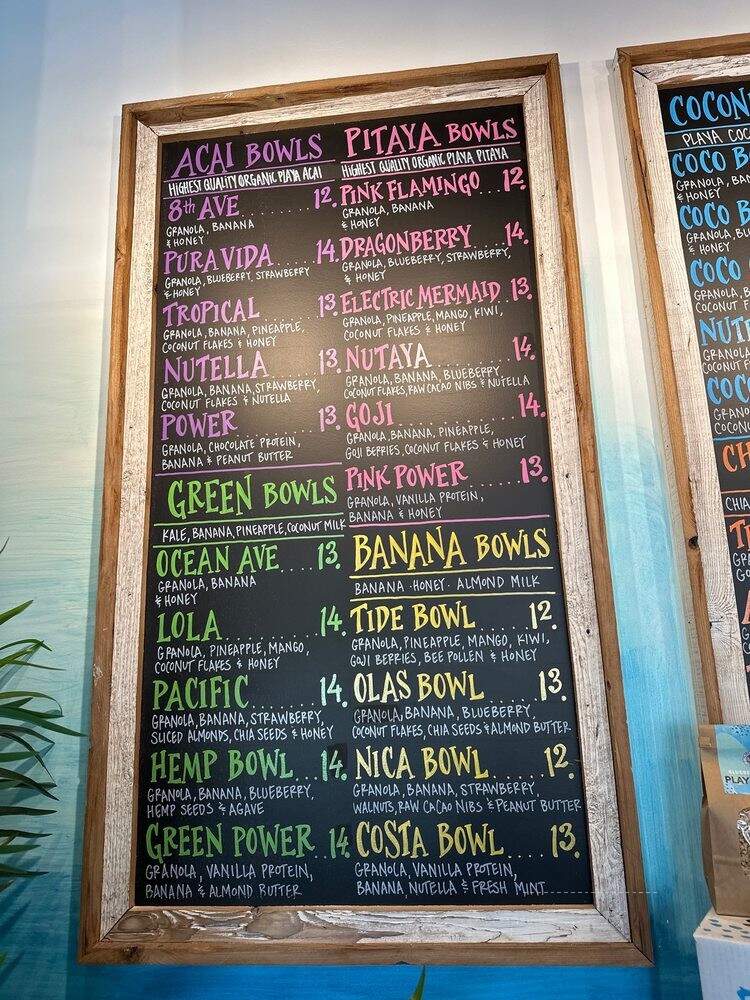 ACAI BOWLS
HIGHEST QUALITY ORGANIC PLAYA ACAI
8th AVE ........ 12.
GRANOLA, BANANA
& HONEY
PURA VIDA .... 14.
GRANOLA, BLUEBERRY, STRAWBERRY
& HONEY
TROPICAL ...... 13.
GRANOLA, BANANA, PINEAPPLE,
COCONUT FLAKES & HONEY
NUTELLA ...... 13.
GRANOLA, BANANA, STRAWBERRY,
COCONUT FLAKES & NUTELLA
POWER ........ 13.
GRANOLA, CHOCOLATE PROTEIN,
BANANA & PEANUT BUTTER
GREEN BOWLS
KALE, BANANA, PINEAPPLE, COCONUT MILK
OCEAN AVE .... 13.
GRANOLA, BANANA
& HONEY
LOLA .......... 14.
GRANOLA, PINEAPPLE, MANGO,
COCONUT FLAKES & HONEY
PACIFIC ........ 14.
GRANOLA, BANANA, STRAWBERRY,
SLICED ALMONDS, CHIA SEEDS & HONEY
HEMP BOWL ... 14.
GRANOLA, BANANA, BLUEBERRY,
HEMP SEEDS & AGAVE
GREEN POWER .. 14.
GRANOLA, VANILLA PROTEIN,
BANANA & ALMOND BUTTER
PITAYA BOWLS
HIGHEST QUALITY ORGANIC PLAYA PITAYA
PINK FLAMINGO ... 12.
GRANOLA, BANANA
& HONEY
DRAGONBERRY .... 14.
GRANOLA, BLUEBERRY, STRAWBERRY,
& HONEY
ELECTRIC MERMAID . 13.
GRANOLA, PINEAPPLE, MANGO, KIWI,
COCONUT FLAKES & HONEY
NUTAYA ........ 14.
GRANOLA, BANANA, BLUEBERRY
COCONUT FLAKES, RAW CACAO NIBS & NUTELLA
GOJI ............ 14.
GRANOLA, BANANA, PINEAPPLE,
GOJI BERRIES, COCONUT FLAKES & HONEY
PINK POWER ..... 13.
GRANOLA, VANILLA PROTEIN,
BANANA & HONEY
BANANA BOWLS
BANANA · HONEY · ALMOND MILK
TIDE BOWL ..... 12.
GRANOLA, PINEAPPLE, MANGO, KIWI,
GOJI BERRIES, BEE POLLEN & HONEY
OLAS BOWL ..... 13.
GRANOLA, BANANA, BLUEBERRY,
COCONUT FLAKES, CHIA SEEDS & ALMOND BUTTER
NICA BOWL ..... 12.
GRANOLA, BANANA, STRAWBERRY,
WALNUTS, RAW CACAO NIBS & PEANUT BUTTER
COSTA BOWL .... 13.
GRANOLA, VANILLA PROTEIN,
BANANA, NUTELLA & FRESH MINT
PLAYA COC
COCO B
GRANOLA, BAN
& HONEY
COCO B
GRANOLA, BLU
& HONEY
COCO
GRANOLA, B
COCONUT F
NUT
GRANOLA
COCONUT
COC
GRANO
COCONU
CH
CHIA